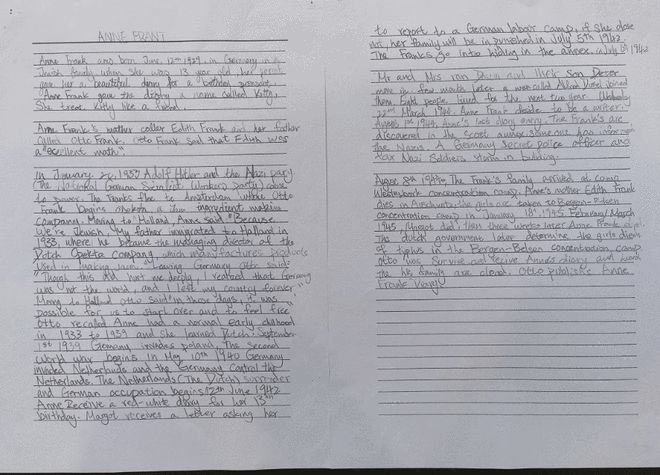 ANNE FRANT
Anne Frank was born June 12th 1929. in Germany in a
Jewish family. when She was 13 year old, her
gave her a beautiful dairy for a birthday present.
Anne Frank gave the a name called Kitty.
She treat Kitty like a friend.
Anne Frank's mother caller Edith Frank and her father
called Otto Frank. Otto Frank said that Edith was
a "excellent moth"
In January 30, 1933 Adolf Hitler and the Nazi party
(The National German Socialist Workers party) came
to power. The Franks flee to Amsterdam where Otto
Frank begins a Jam ingredient making
Company. Moving to Holland, Anne said "Because
We're Jewish, My father immigrated to Holland in
1933, where he became the managing director of the
Dutch Opekta Company, which manufactures products
Used in making Jam." Leaving Germany Otto said
"Though this did hurt me deeply I realized that Germany
was not the world, and I left my country forever"
Moving to Holland Otto said "in those days, it was
possible for us to start over and to feel free"
Otto recalled Anne had a normal early chilhood
in 1933 to 1939 and she learned Dutch. September
1st 1939 Germany invades poland, The second
world war begins. In May 10th 1940 Germany
invaded Netherlands and the Germany Control the
Netherlands. The Netherlands (The Dutch) surrender
and German occupation begins. 12th June 1942
Anne Receive a red-white diary for her 13th
birthday. Margot receives a letter asking her
to report to a German labour camp, if she dose
not, her family will be in punished in July 5th 1942.
The Franks go into hiding in the annex. in July 6th 1942
Mr and Mrs van Daan and their son Peter
move in few months later a man called Albert Dussel joined
them, Eight people, lived for the next two year.
1944. Anne Frank decide to be a writer.
August 1st 1944, Anne's last diary entry. The Frank's are
discovered in the secret annex, someone has
the Nazis. A Germany secret police officer and
Nazi Soldiers storm in building.
August 8th 1944 The Frank's family arrived at camp
Westerbork concentration camp. Anne's mother Edith Frank
dies in Auschwitz, the girls are taken to Bergen-Belsen
concentration camp in January 18th, 1945. February/March
1945, Margot died, then three weeks later Anne Frank
The dutch government later determine the girls died
of typhus in the Bergen-Belsen concentration camp
Otto was Survive and Anne's diary and
the his family are dead. Otto publishe Anne
Frank